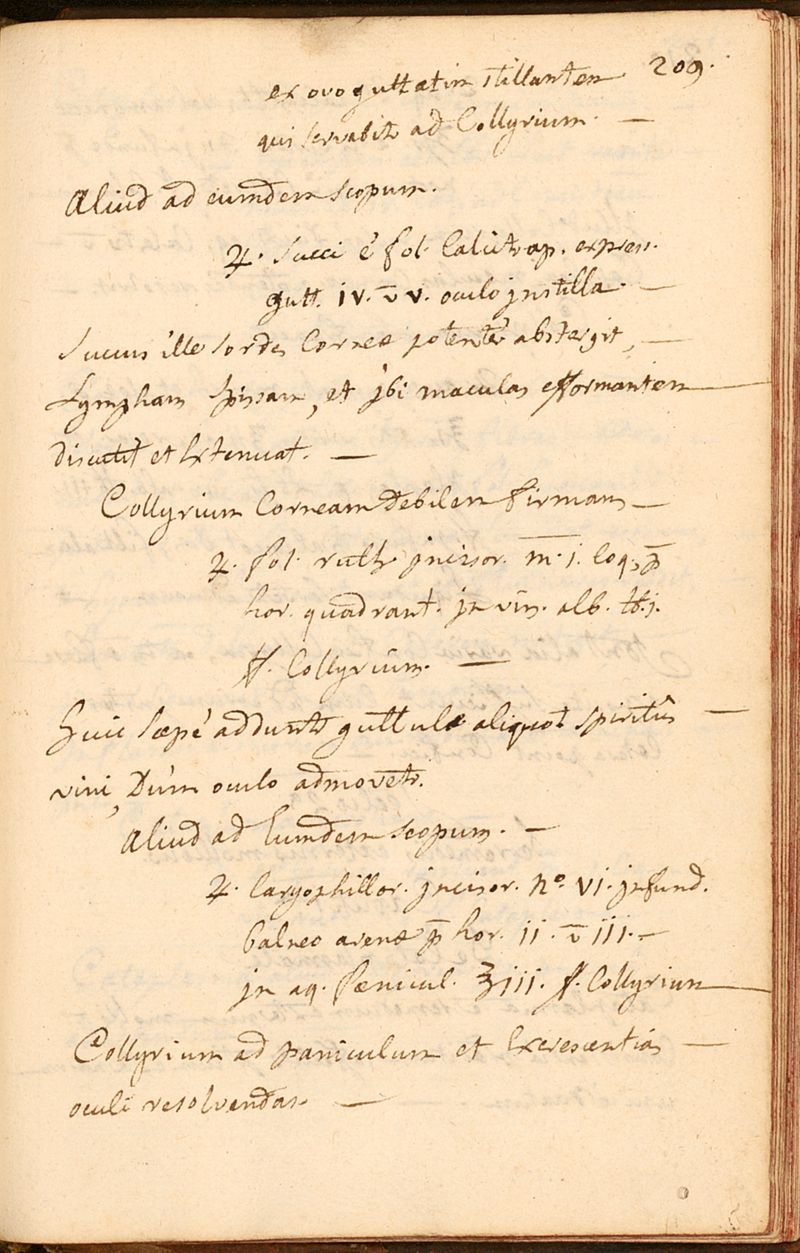 209.
ex ovo guttatim stillantem
qui servabitr ad Collyrium. —
Aliud ad eumdem scopum.
♃. Succi è fol. Calcitrap. expres.
gutt. iv. v̄ v. oculo jnstilla. —
Succus ille sordes Corneæ potenter abstergit, —
Lympham spissam, et jbi maculas efformantem —
discutit et Extenuat. —
Collyrium Corneam debilem firmans —
♃. fol. ruthæ jncisor. m. j. coq. p̄
hor. quadrant. jn vin. alb. ℔.j.
ff. Collyrium. —
huic sæpè adduntr guttulæ aliquot spiritûs —
vini, Dùm oculo admovetr.
Aliud ad Eumdem scopum. —
♃. Caryophillor. jncisor. nº. vi. jnfund.
balneo arenæ p̄ hor. ii. v̄ iii. —
jn aq. fœnicul. ℥iii. ff. Collyrium —
Collyrium ad paniculum et Excrescentias —
oculi resolvendas. —